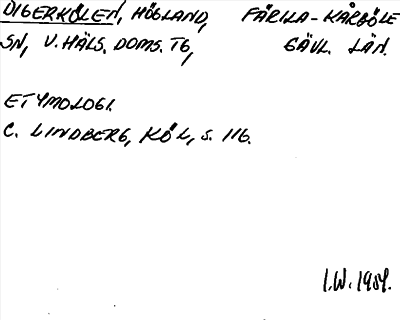 DIGERKÖLEN, HÖGLAND, FÄRILA-KÅRBÖLE
SN, V. HÄLS. DOMS. TG, GÄVL. LÄN.
ETYMOLOGI.
C. LINDBERG, KÖL, S. 116.
I.W. 1984.